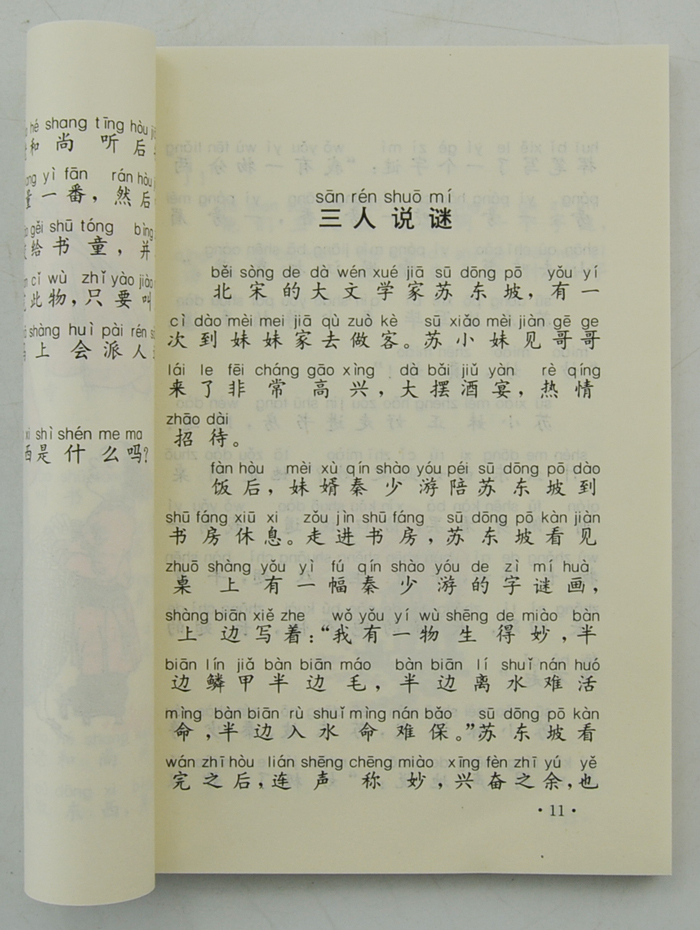 hé shang tīng hòu
和尚听后
yì fān rán hòu
一番，然后
gěi shū tóng bìng
给书童，并
cǐ wù zhǐ yào jiào
此物，只要叫
shàng huì pài rén
上会派人
shì shén me ma
是什么吗？
sān rén shuō mí
三人说谜
běi sòng de dà wén xué jiā sū dōng pō yǒu yí
北宋的大文学家苏东坡，有一
cì dào mèi mei jiā qù zuò kè sū xiǎo mèi jiàn gē ge
次到妹妹家去做客。苏小妹见哥哥
lái le fēi cháng gāo xìng dà bǎi jiǔ yàn rè qíng
来了非常高兴，大摆酒宴，热情
zhāo dài
招待。
fàn hòu mèi xù qín shào yóu péi sū dōng pō dào
饭后，妹婿秦少游陪苏东坡到
shū fáng xiū xi zǒu jìn shū fáng sū dōng pō kàn jiàn
书房休息。走进书房，苏东坡看见
zhuō shàng yǒu yì fú qín shào yóu de zì mí huà
桌上有一幅秦少游的字谜画，
shàng biān xiě zhe wǒ yǒu yí wù shēng de miào bàn
上边写着：“我有一物生得妙，半
biān lín jiǎ bàn biān máo bàn biān lí shuǐ nán huó
边鳞甲半边毛，半边离水难活
mìng bàn biān rù shuǐ mìng nán bǎo sū dōng pō kàn
命，半边入水命难保。”苏东坡看
wán zhī hòu lián shēng chēng miào xīng fèn zhī yú yě
完之后，连声称妙，兴奋之余，也
·11·